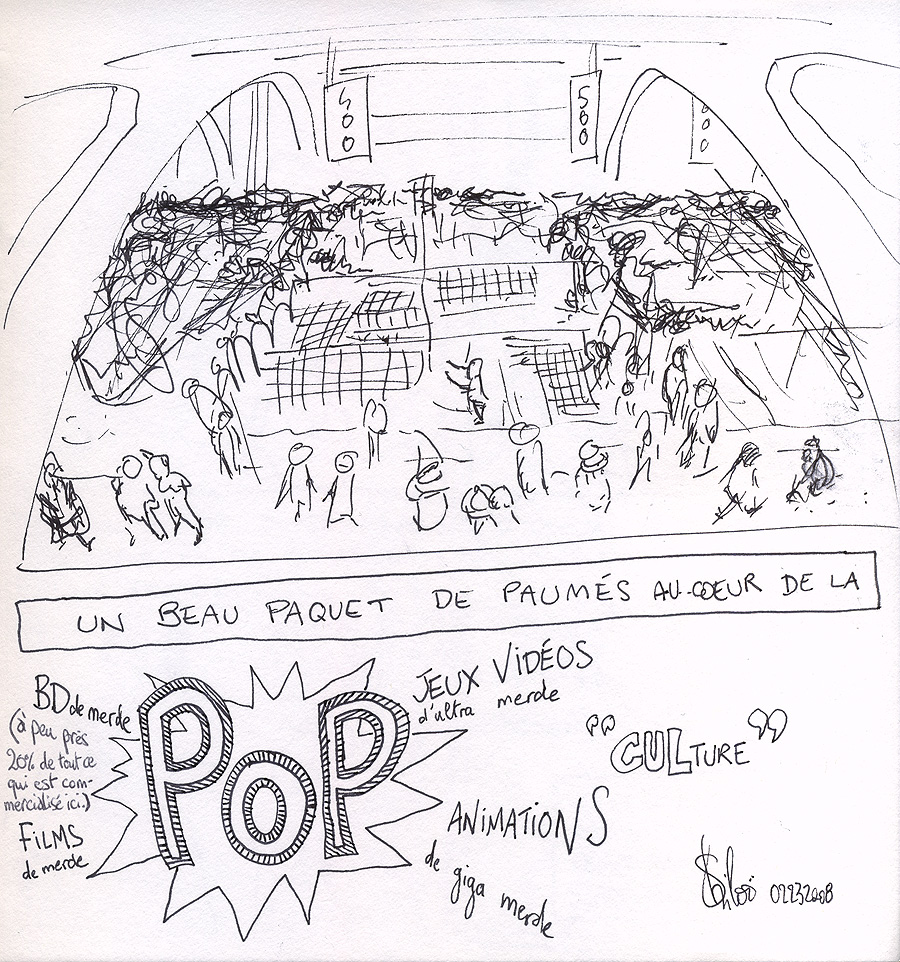 500
500
UN BEAU PAQUET DE PAUMÉS AU COEUR DE LA
POP
"CULTURE"
BD de merde
(à peu près
20% de tout ce
qui est com-
mercialisé ici.)
FILMS
de merde
JEUX VIDÉOS
d'ultra merde
ANIMATIONS
de giga merde
02232008